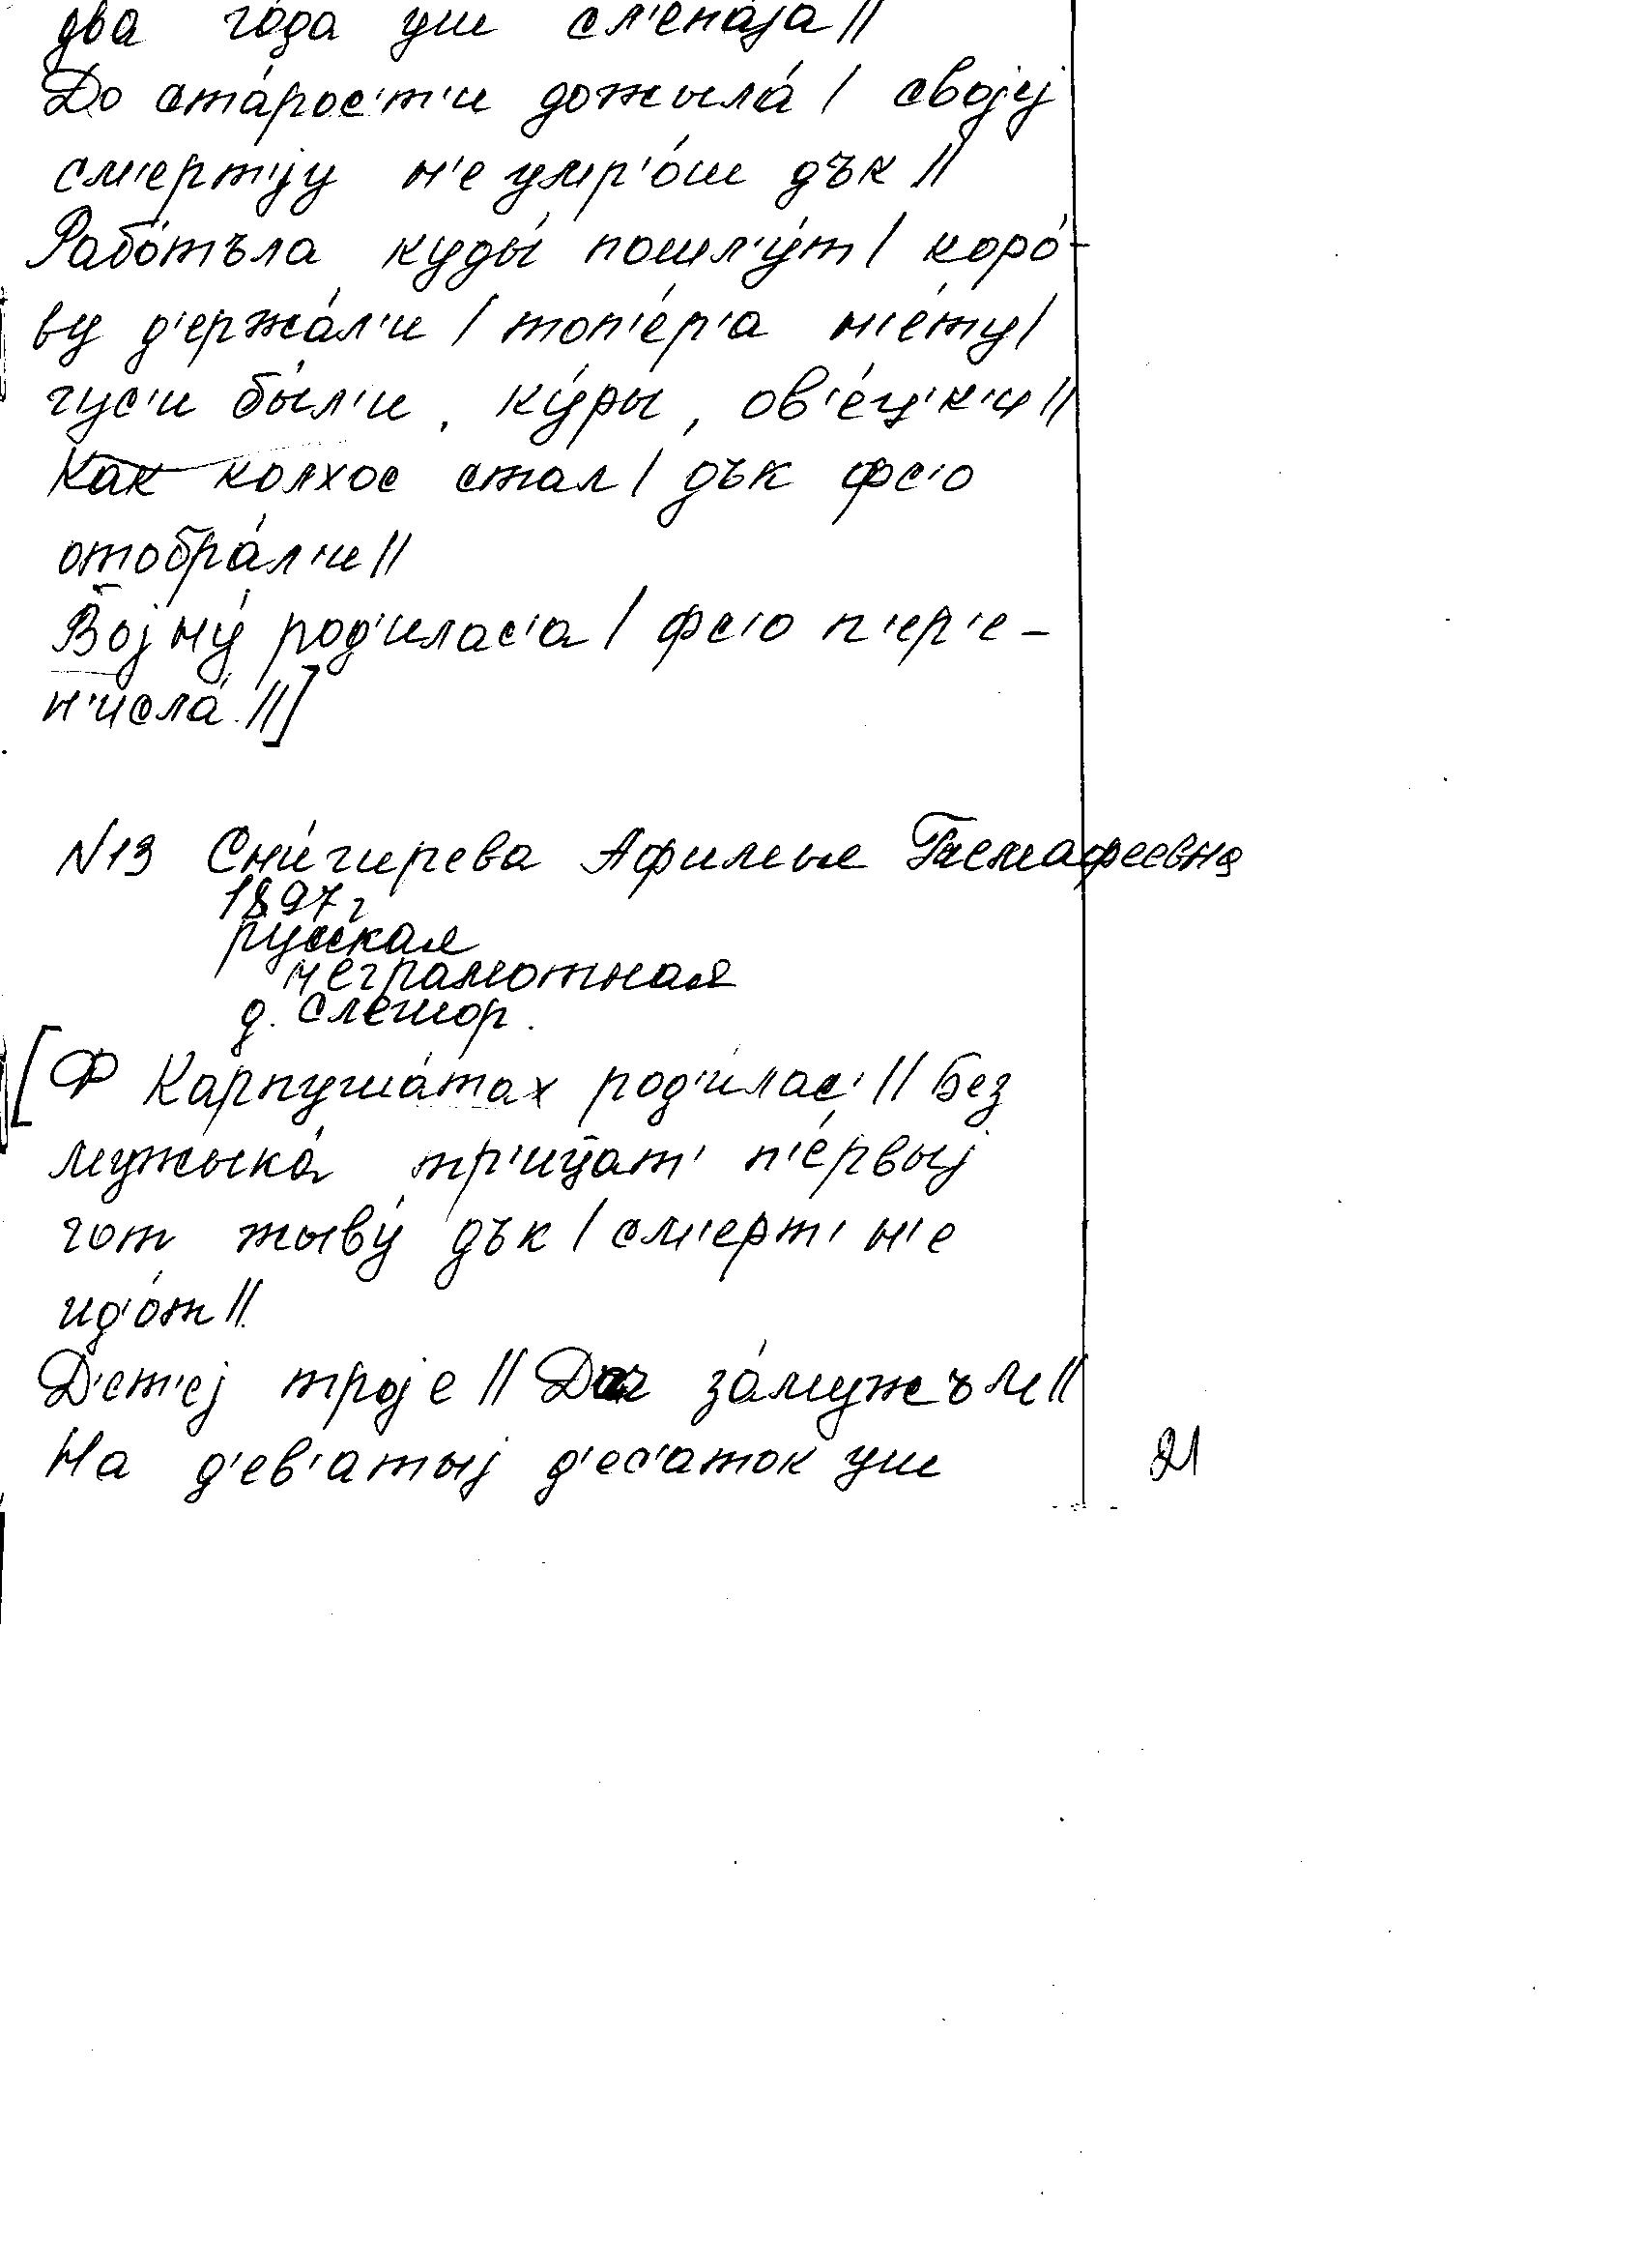 два го́да уш сл'епа́jа ||
До ста́рос'т'и дожыла́ | својуј
см'ерт'jу н'е умр'о́ш дък ||
Рабо́тъла куды́ пошл'у́т | коро́-
ву д'ержа́л'и | топ'е́р'а н'е́ту |
гус'и бы́л'и, ку́ры, ов'е́ц'к'и ||
Как колхос стал | дък фс'о
отобра́л'и ||
Војну́ род'илас'а | фс'о п'ер'е-
н'исла́ ||]
N13 Сни́гирева Афимья
1897 г
русская
неграмотная
д. Слешор.
[Ф Карпуша́тах род'и́лас' || Без
мужыка́ тр'ицат' п'е́рвыј
гот жыву́ дък | см'ерт' н'е
ид'о́т ||
Д'ет'еј троjе || за́мужъм ||
На д'ев'атыј д'ес'аток уш
21